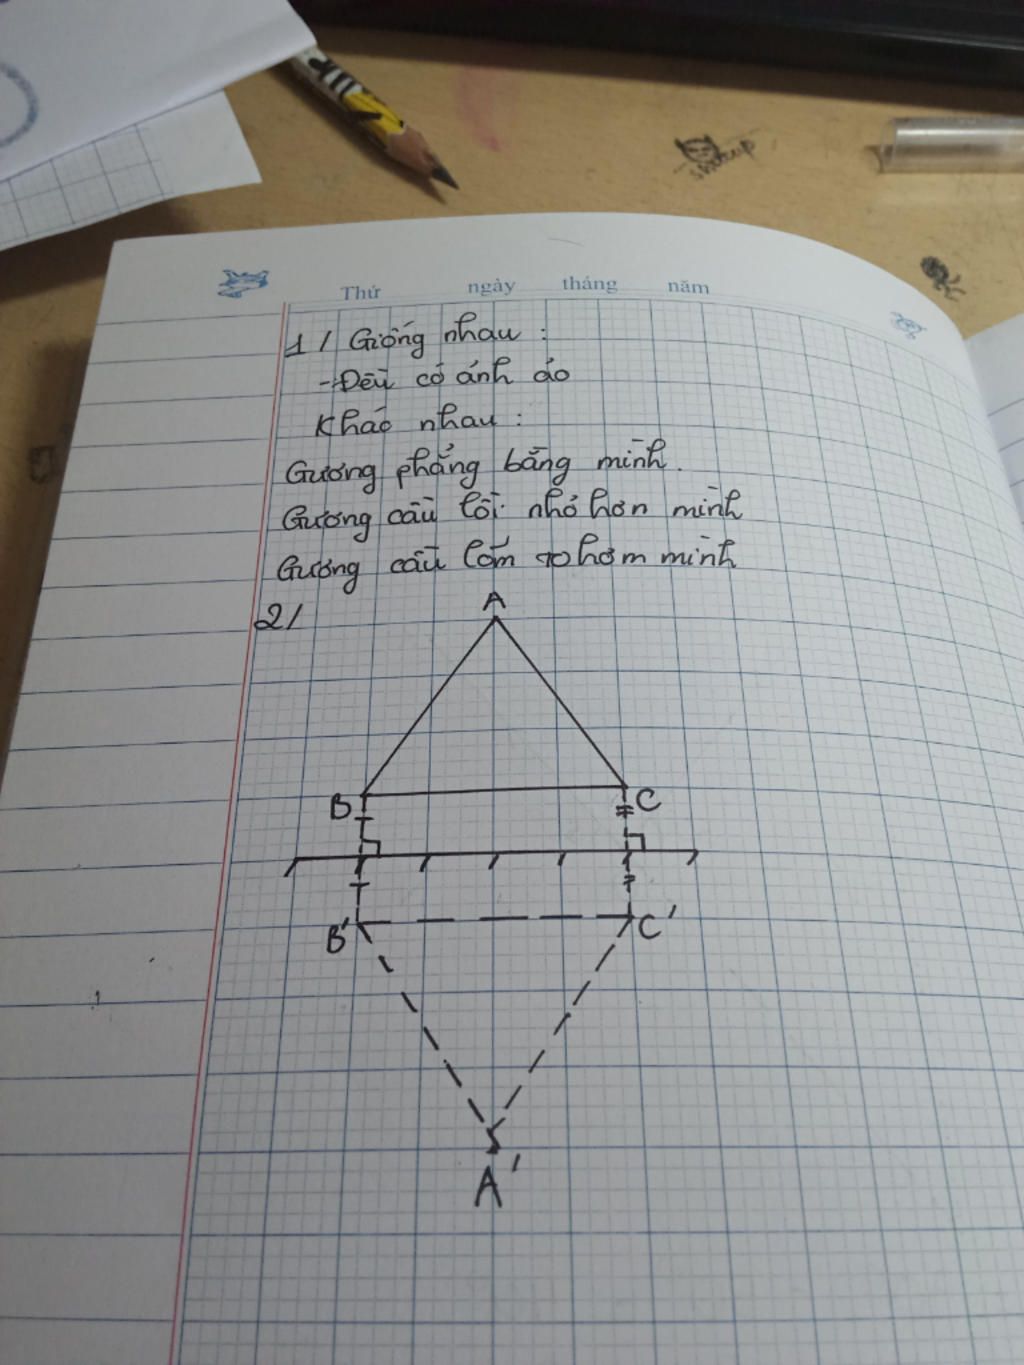 shutup
Thứ ngày tháng năm
1/ Giống nhau :
-Đều có ảnh ảo
Khác nhau :
Gương phẳng bằng mình.
Gương cầu lồi nhỏ hơn mình
Gương cầu lõm to hơm mình
2/
A
B C
B' C'
A'